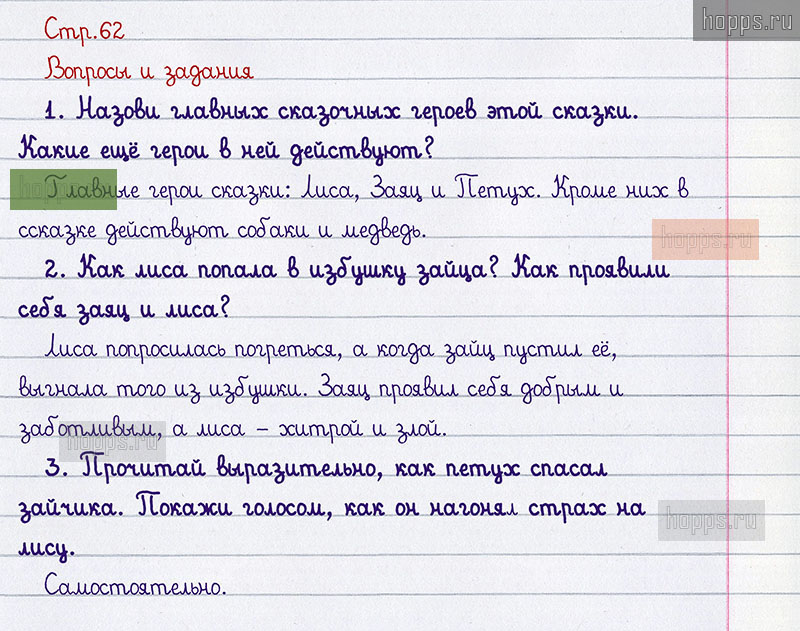 hopps.ru
Стр.62
Вопросы и задания
1. Назови главных сказочных героев этой сказки.
Какие ещё герои в ней действуют?
Главные герои сказки: Лиса, Заяц и Петух. Кроме них в
ссказке действуют собаки и медведь.
hopps.ru
2. Как лиса попала в избушку зайца? Как проявили
себя заяц и лиса?
Лиса попросилась погреться, а когда зайц пустил её,
выгнала того из избушки. Заяц проявил себя добрым и
заботливым, а лиса – хитрой и злой.
hopps.ru
3. Прочитай выразительно, как петух спасал
зайчика. Покажи голосом, как он нагонял страх на
hopps.ru
лису.
Самостоятельно.